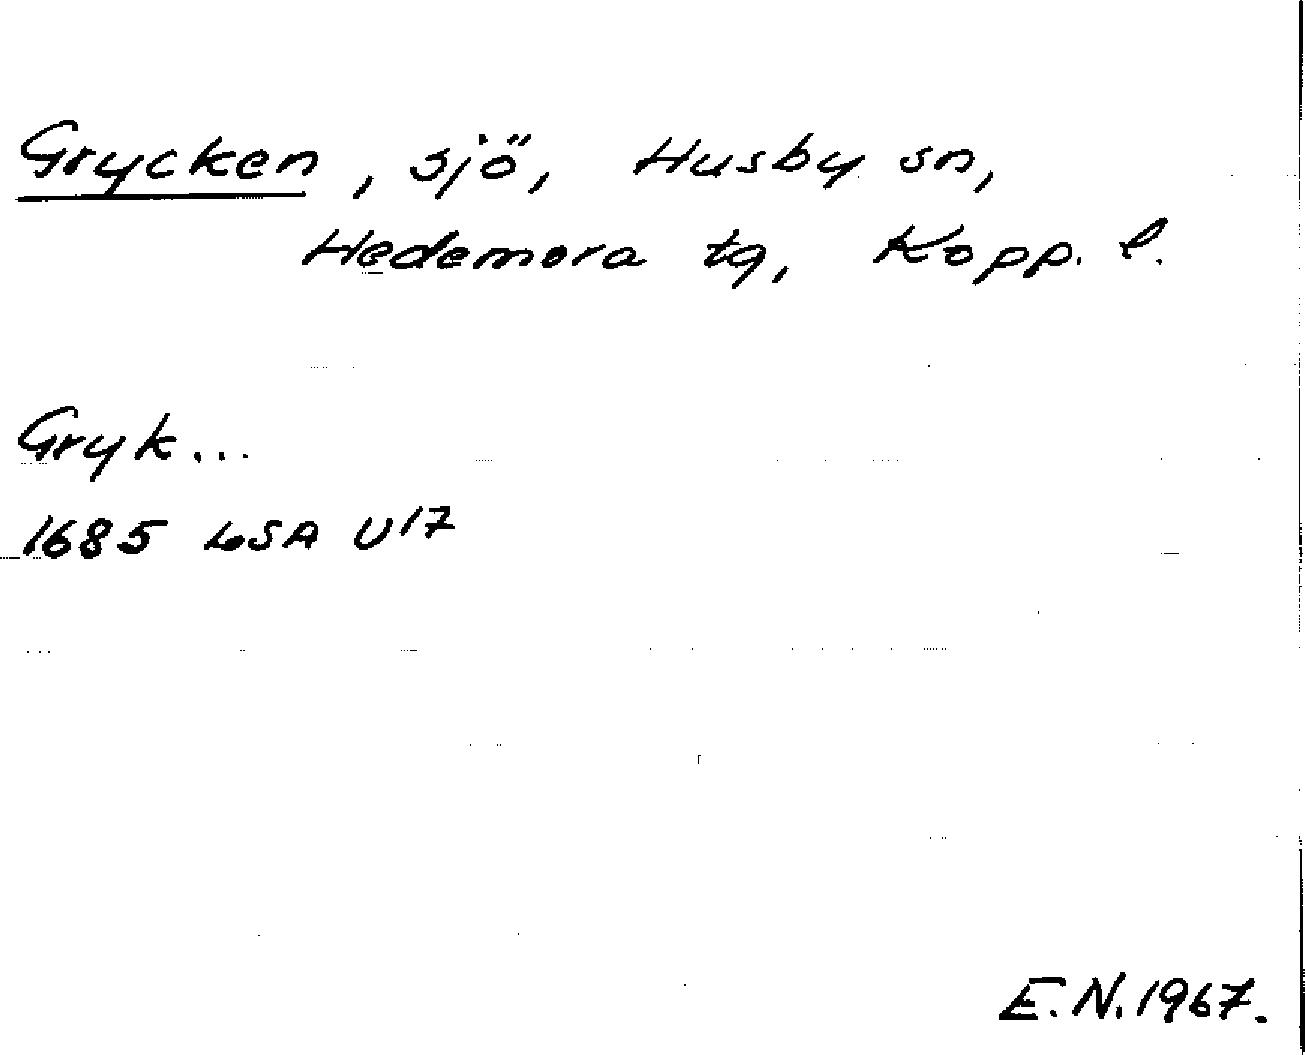 Grycken, sjö, Husby sn,
Hedemora tg, Kopp. l.
Gryk...
1685 LSA U17
E.N. 1967.